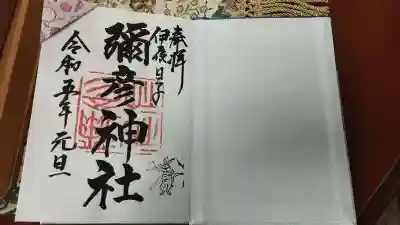 奉拝
伊夜日子
彌彦神社
令和五年 元旦